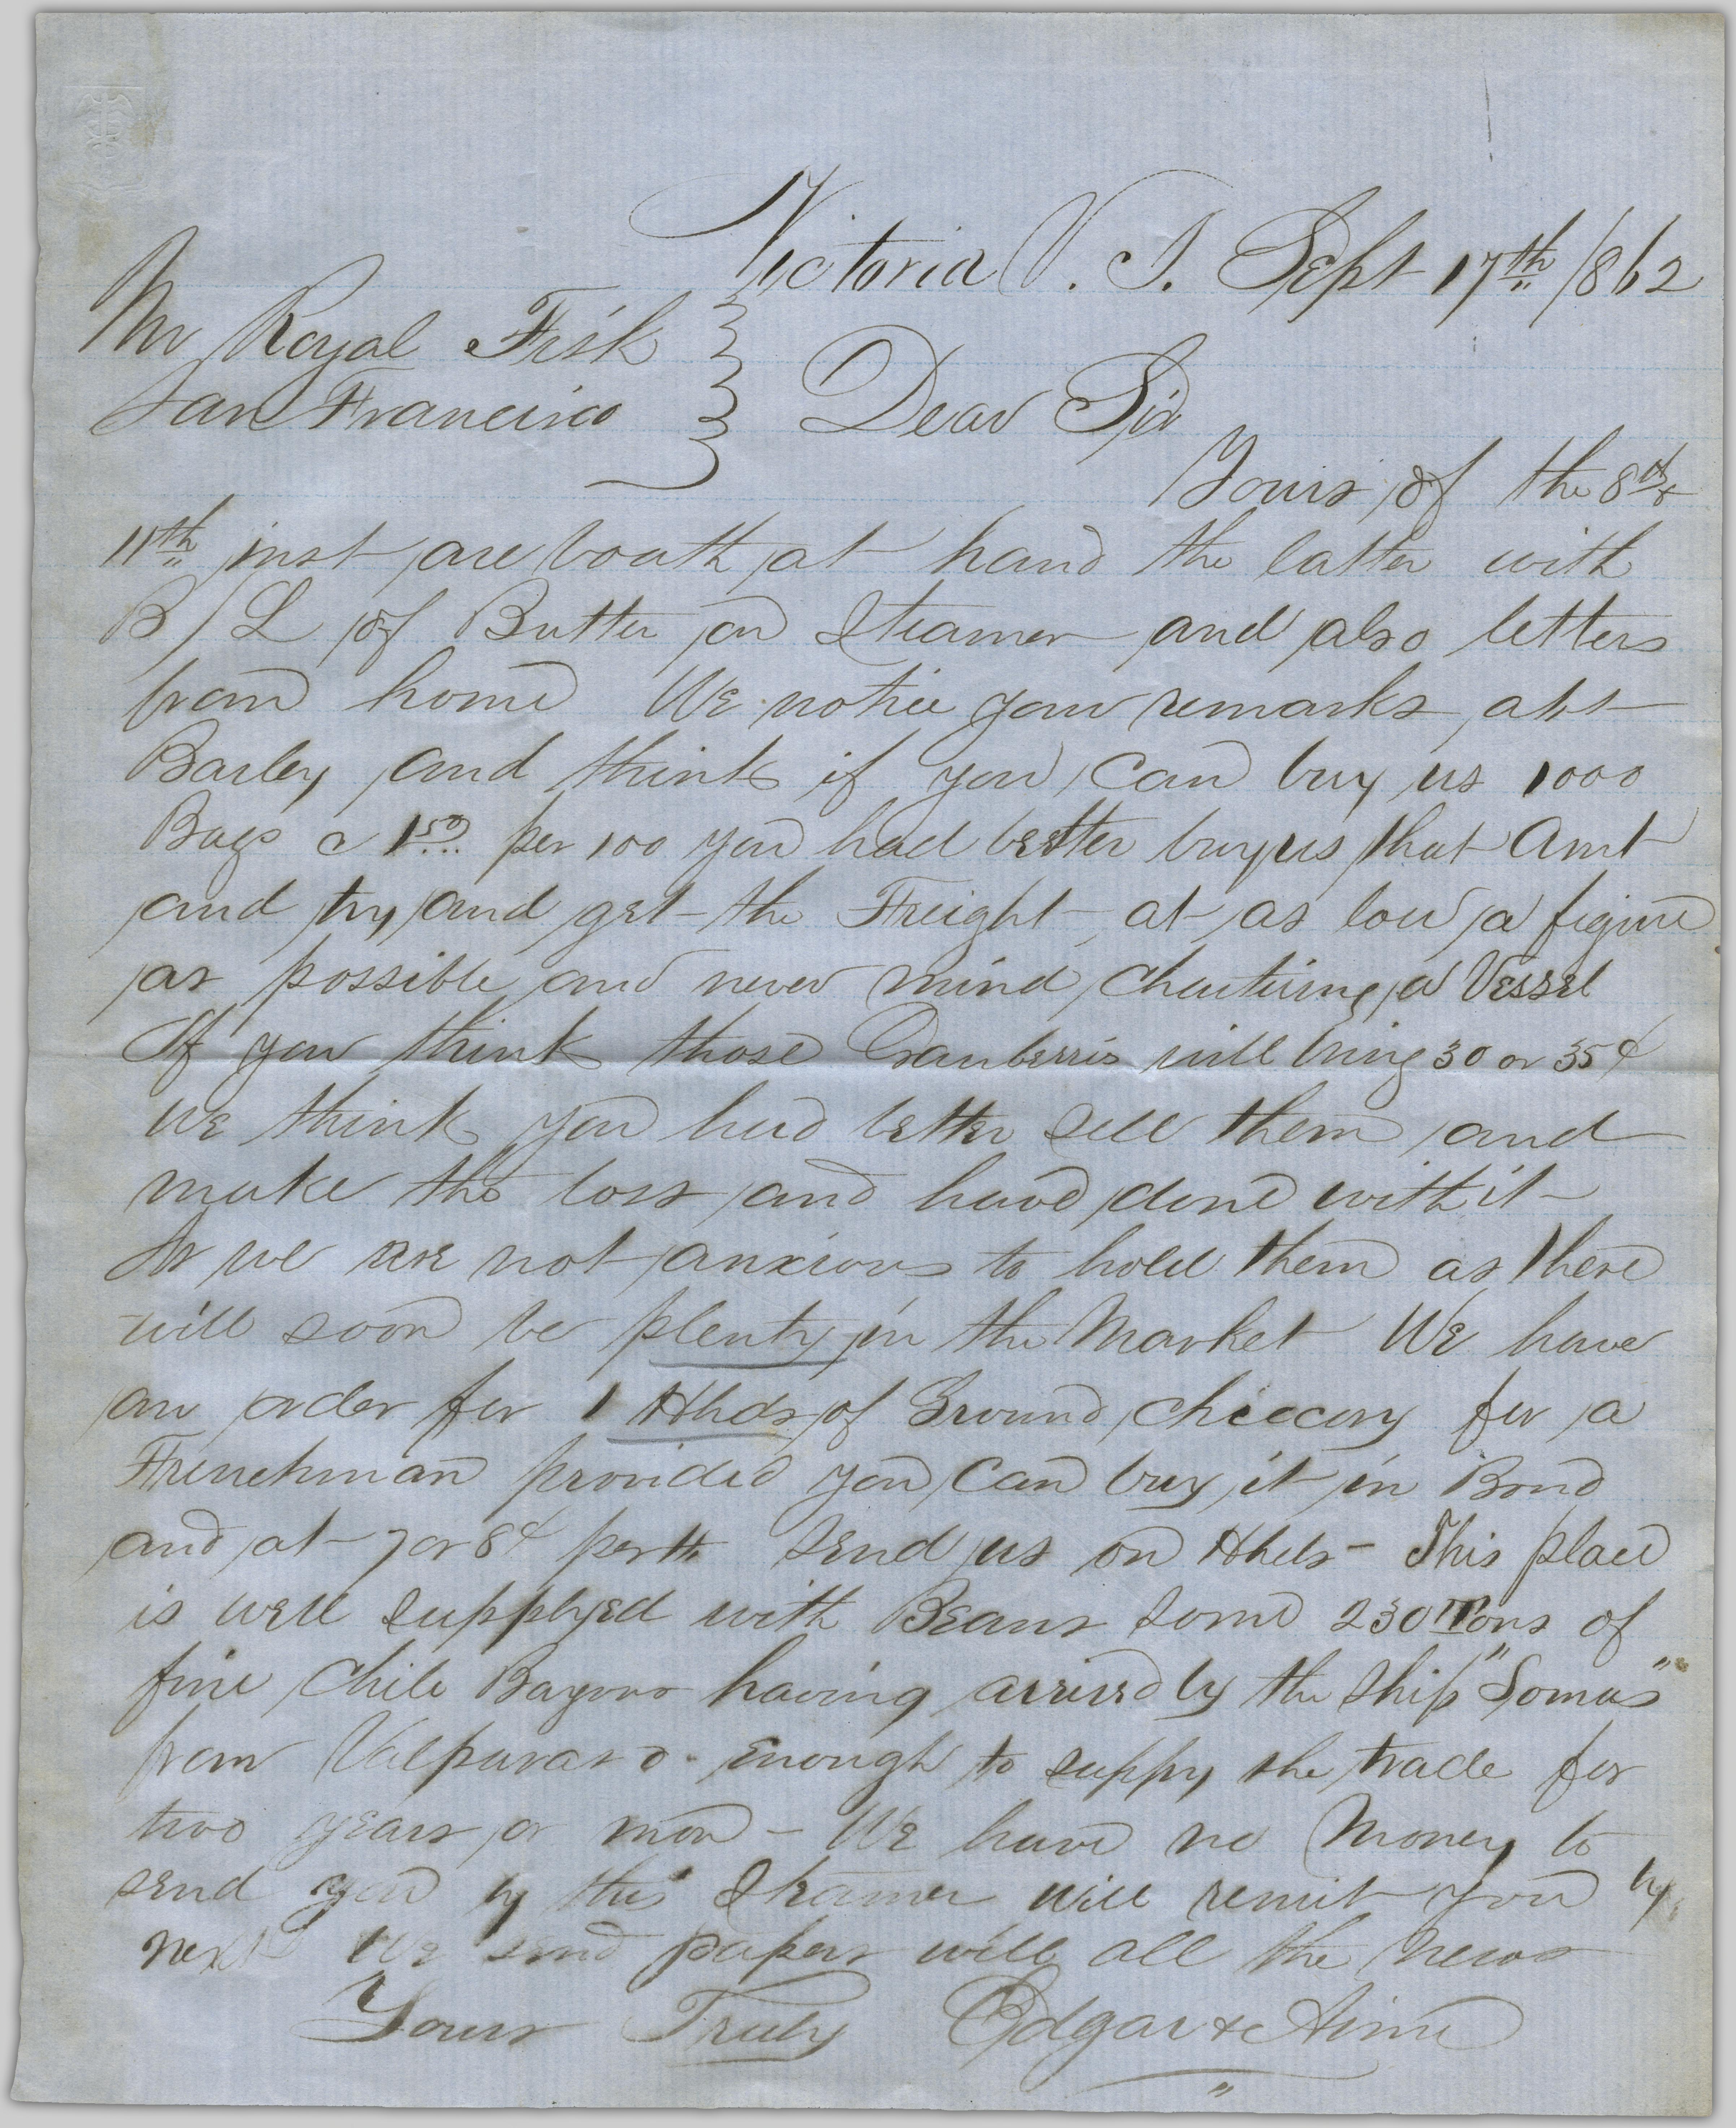 Victoria V. I. Sept 17th 1862
Mr Royal Fisk
San Francisco
Dear Sir
Yours of the 8th &
11th inst are bouth at hand the latter with
B/L of Butter on Steamer and also letters
from home We notice your remarks abt
Barley and think if you can buy us 1000
Bags @ 1.50 per 100 you had better buy us that Amt
and try and get the Freight at as low a figure
as possible and never mind chartering a Vessel
If you think those Cranberris will bring 30 or 35¢
we think you had better sell them and
make the loss and have done with it
As we are not anxious to hold them as there
will soon be plenty in the Market We have
an order for 1 Hhds of Ground Chiccory for a
Frenchman provided you can buy it in Bond
and at 7 or 8¢ per lb send us on Hhds - This place
is well supplyed with Beans some 230 Tons of
fine Chile Bayous having arrived by the Ship "Somas"
from Valparaso. Enough to suppy the trade for
two years or more - We have no Money to
send you by this Steamer will remit you by
next We send papers with all the news
Yours Truly Edgar &